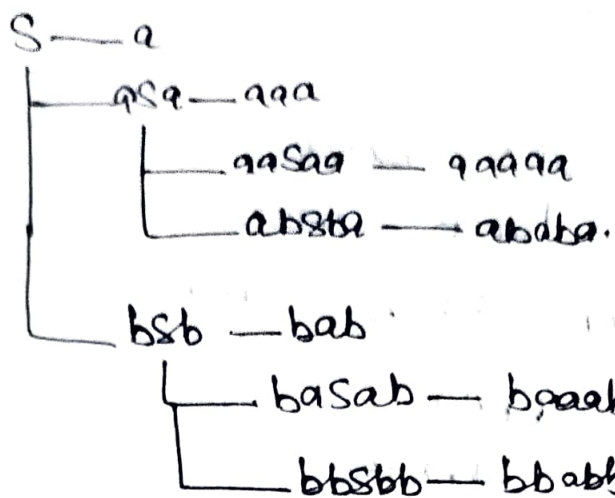 S — a
aSa — aaa
aaSaa — aaaaa
absba — ababa.
bsb — bab
baSab — baaab
bbsbb — bbabb